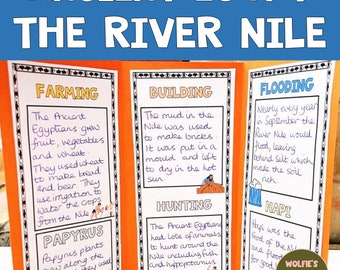 THE RIVER NILE
FARMING
The Ancient
Egyptians grew
fruit, vegetables
and wheat.
They used wheat
to make bread
and beer. They
use irrigation to
water the crops
from the Nile
PAPYRUS
Papyrus plants
along the
BUILDING
The mud in the
Nile was used
to make bricks
It was put in a
mould and left
to dry in the hot
sun.
HUNTING
The Ancient Egyptians
had lots of animals
to hunt around the
Nile including fish
and hippopotamus
FLOODING
Nearly every year
in September the
River Nile would
flood, leaving
behind silt which
made the soil
rich.
HAPI
Hapi was the
God of the Nile
WOLFIE'S